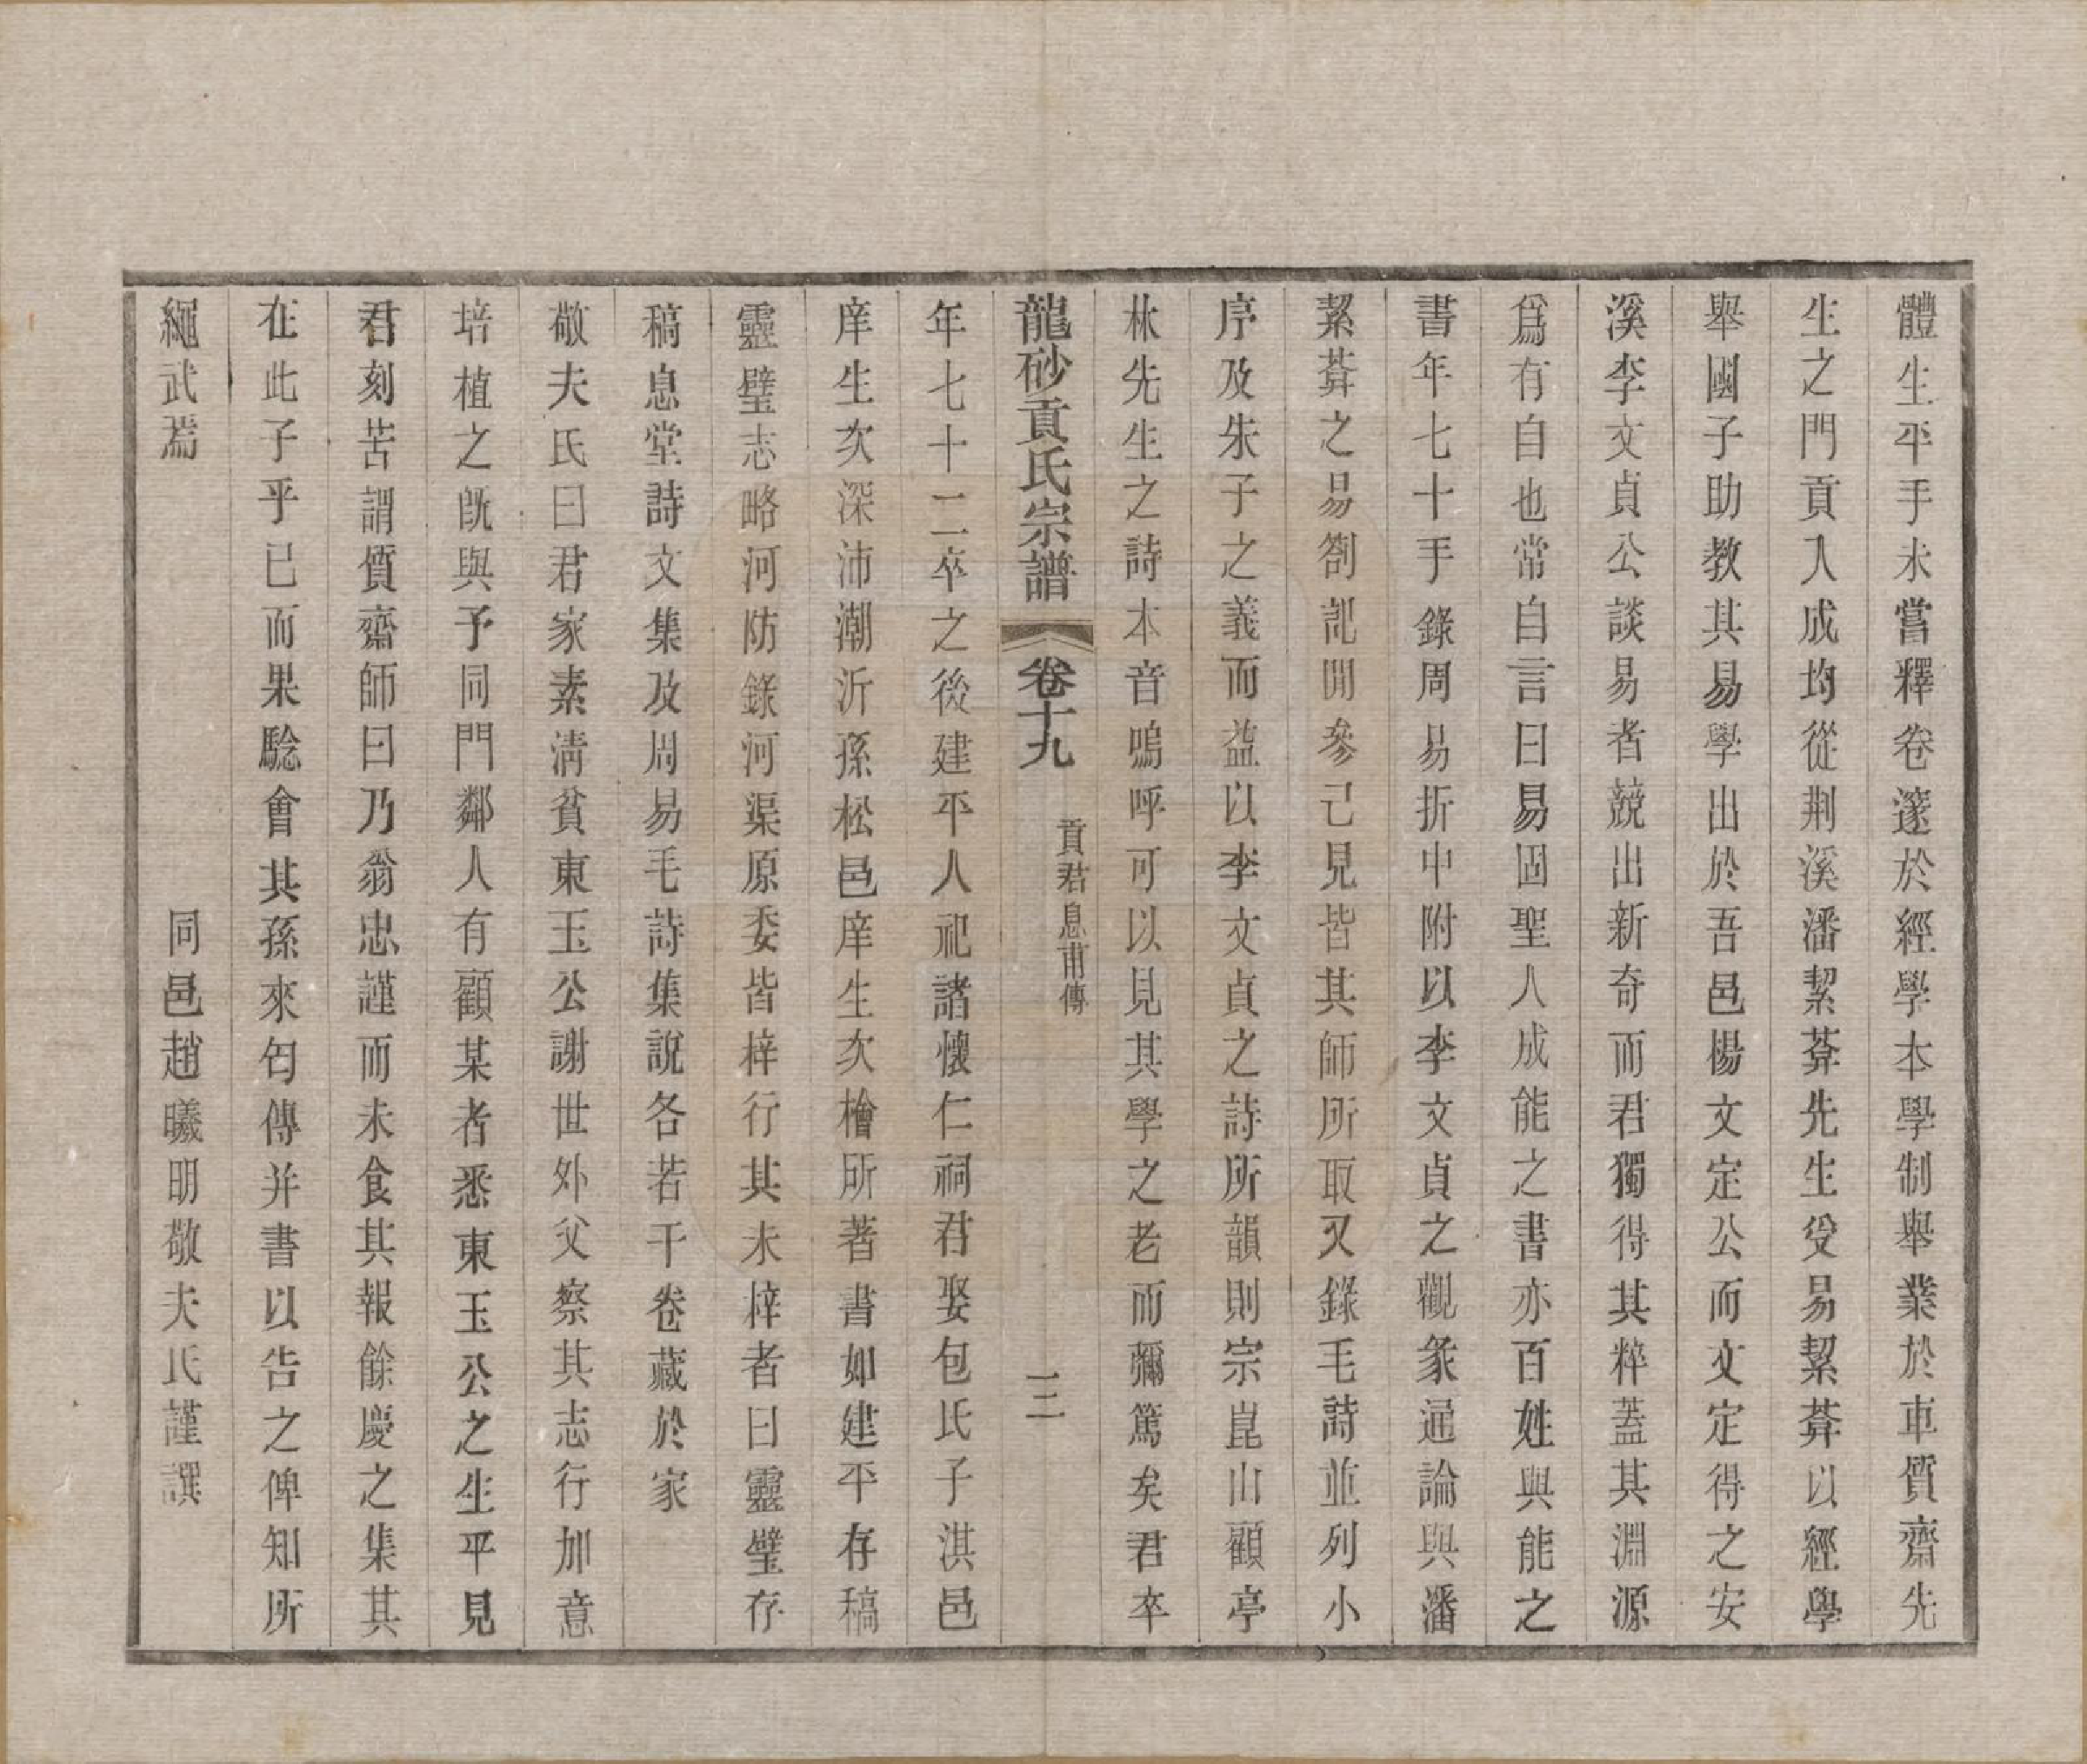 體生平手未嘗釋卷邃於經學本學制舉業於車質齋先
生之門貢入成均從荆溪潘絜莾先生受易絜莾以經學
舉國子助教其易學出於吾邑楊文定公而文定得之安
溪李文貞公談易者競出新奇而君獨得其粹蓋其淵源
爲有自也常自言曰易固聖人成能之書亦百姓與能之
書年七十手錄周易折中附以李文貞之觀彖通論與潘
絜莾之易劄記閒參己見皆其師所取又錄毛詩並列小
序及朱子之義而益以李文貞之詩所韻則宗崑山顧亭
林先生之詩本音嗚呼可以見其學之老而彌篤矣君卒
龍砂貢氏宗譜 卷十九 貢君息甫傳 三
年七十二卒之後建平人祀諸懷仁祠君娶包氏子淇邑
庠生次深沛潮沂孫松邑庠生次檜所著書如建平存稿
靈璧志略河防錄河渠原委皆梓行其未梓者曰靈璧存
稿息堂詩文集及周易毛詩集說各若干卷藏於家
敬夫氏曰君家素淸貧東玉公謝世外父察其志行加意
培植之旣與予同門鄰人有顧某者悉東玉公之生平見
君刻苦謂質齋師曰乃翁忠謹而未食其報餘慶之集其
在此子乎已而果騐會其孫來匄傳并書以告之俾知所
繩武焉
同邑趙曦明敬夫氏謹譔